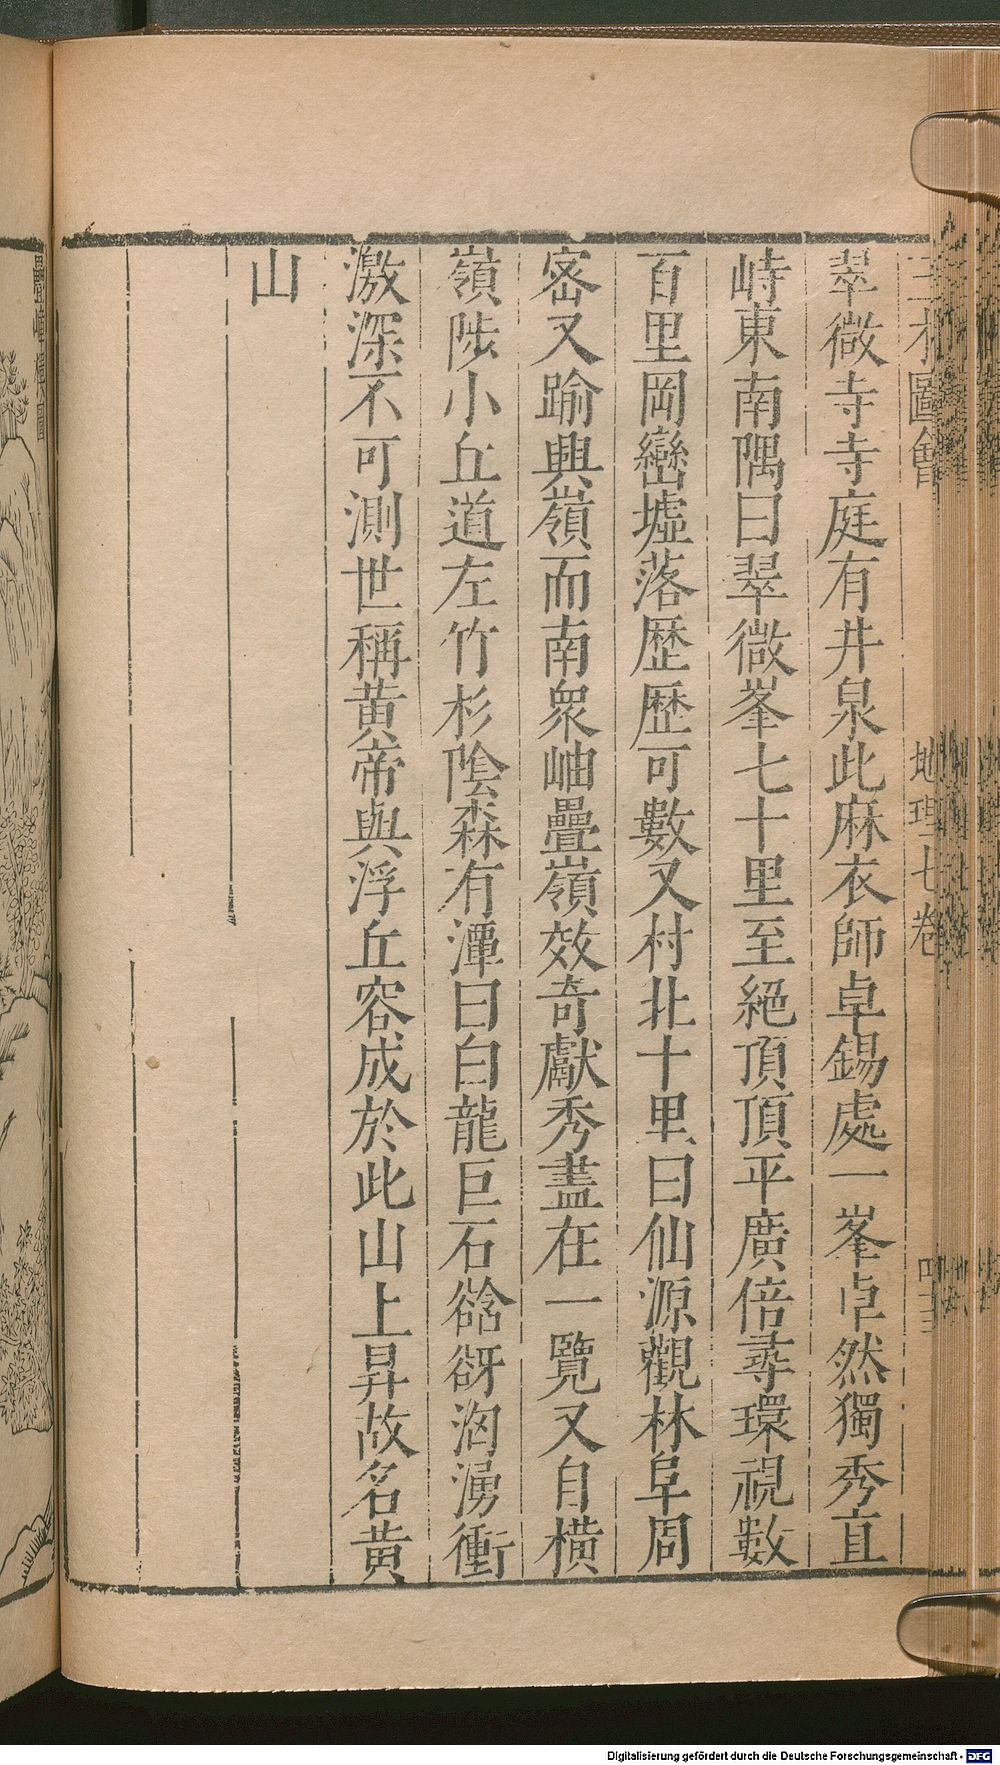 三才圖會 地理七卷 四十三
翠微寺寺庭有井泉此麻衣師卓錫處一峯卓然獨秀直
峙東南隅曰翠微峯七十里至絕頂頂平廣倍尋環視數
百里岡巒墟落歷歷可數又村北十里曰仙源觀林阜周
密又踰興嶺而南衆岫疊嶺效奇獻秀盡在一覽又自橫
嶺陟小丘道左竹杉陰森有潭曰白龍巨石谽谺洶湧衝
激深不可測世稱黃帝與浮丘容成於此山上昇故名黃
山
Digitalisierung gefördert durch die Deutsche Forschungsgemeinschaft - DFG